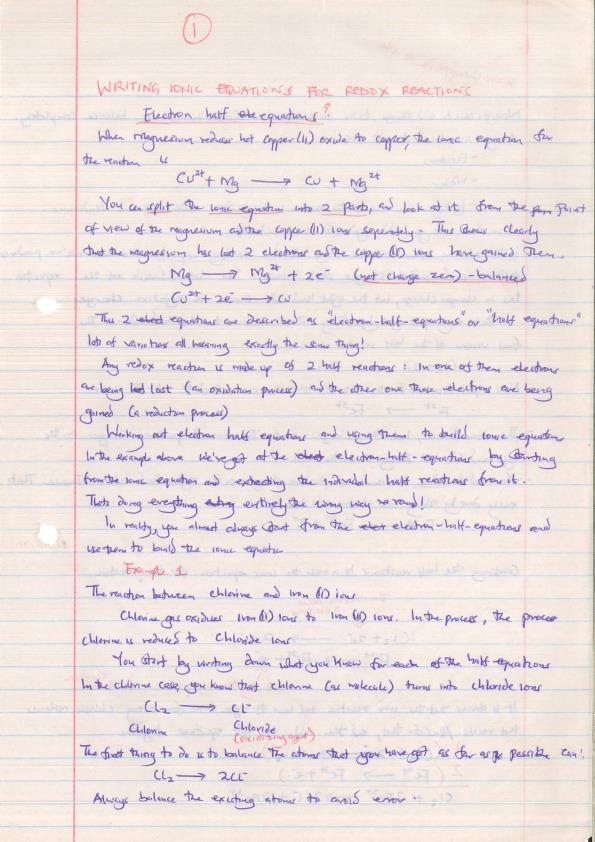 1
WRITING IONIC EQUATIONS FOR REDOX REACTIONS
Electron half equations?
When magnesium reduces hot copper(II) oxide to copper, the ionic equation for
the reaction is
Cu²⁺ + Mg ⟶ Cu + Mg²⁺
You can split the ionic equation into 2 parts, and look at it from the point
of view of the magnesium and the copper (II) ions seperately. This shows clearly
that the magnesium has lost 2 electrons and the copper (II) ions have gained them.
Mg ⟶ Mg²⁺ + 2e⁻ (net charge zero) - balanced
Cu²⁺ + 2e⁻ ⟶ Cu
This 2 equations are described as "electron-half-equations" or "half equations"
lots of variations all meaning exactly the same thing!
Any redox reaction is made up of 2 half reactions: in one of them electrons
are being lost (an oxidation process) and the other one those electrons are being
gained (a reduction process)
Working out electron half equations and using them to build ionic equations
In the example above we've got at the electron-half-equations by starting
from the ionic equation and extracting the individual half reactions from it.
Thats doing everything entirely the wrong way round!
In reality, you almost always start from the electron-half-equations and
use them to build the ionic equation
Example 1
The reaction between chlorine and iron (II) ions
Chlorine gas oxidises iron(II) ions to iron (III) ions. In the process, the process
chlorine is reduced to chloride ions
You start by writing down what you know for each of the half-equations
In the chlorine case, you know that chlorine (as molecule) turns into chloride ions
Cl₂ ⟶ Cl⁻
Chlorine Chloride
(oxidizing agent)
The first thing to do is to balance the atoms that you have got as far as possible can!
Cl₂ ⟶ 2Cl⁻
Always balance the existing atoms to avoid error.